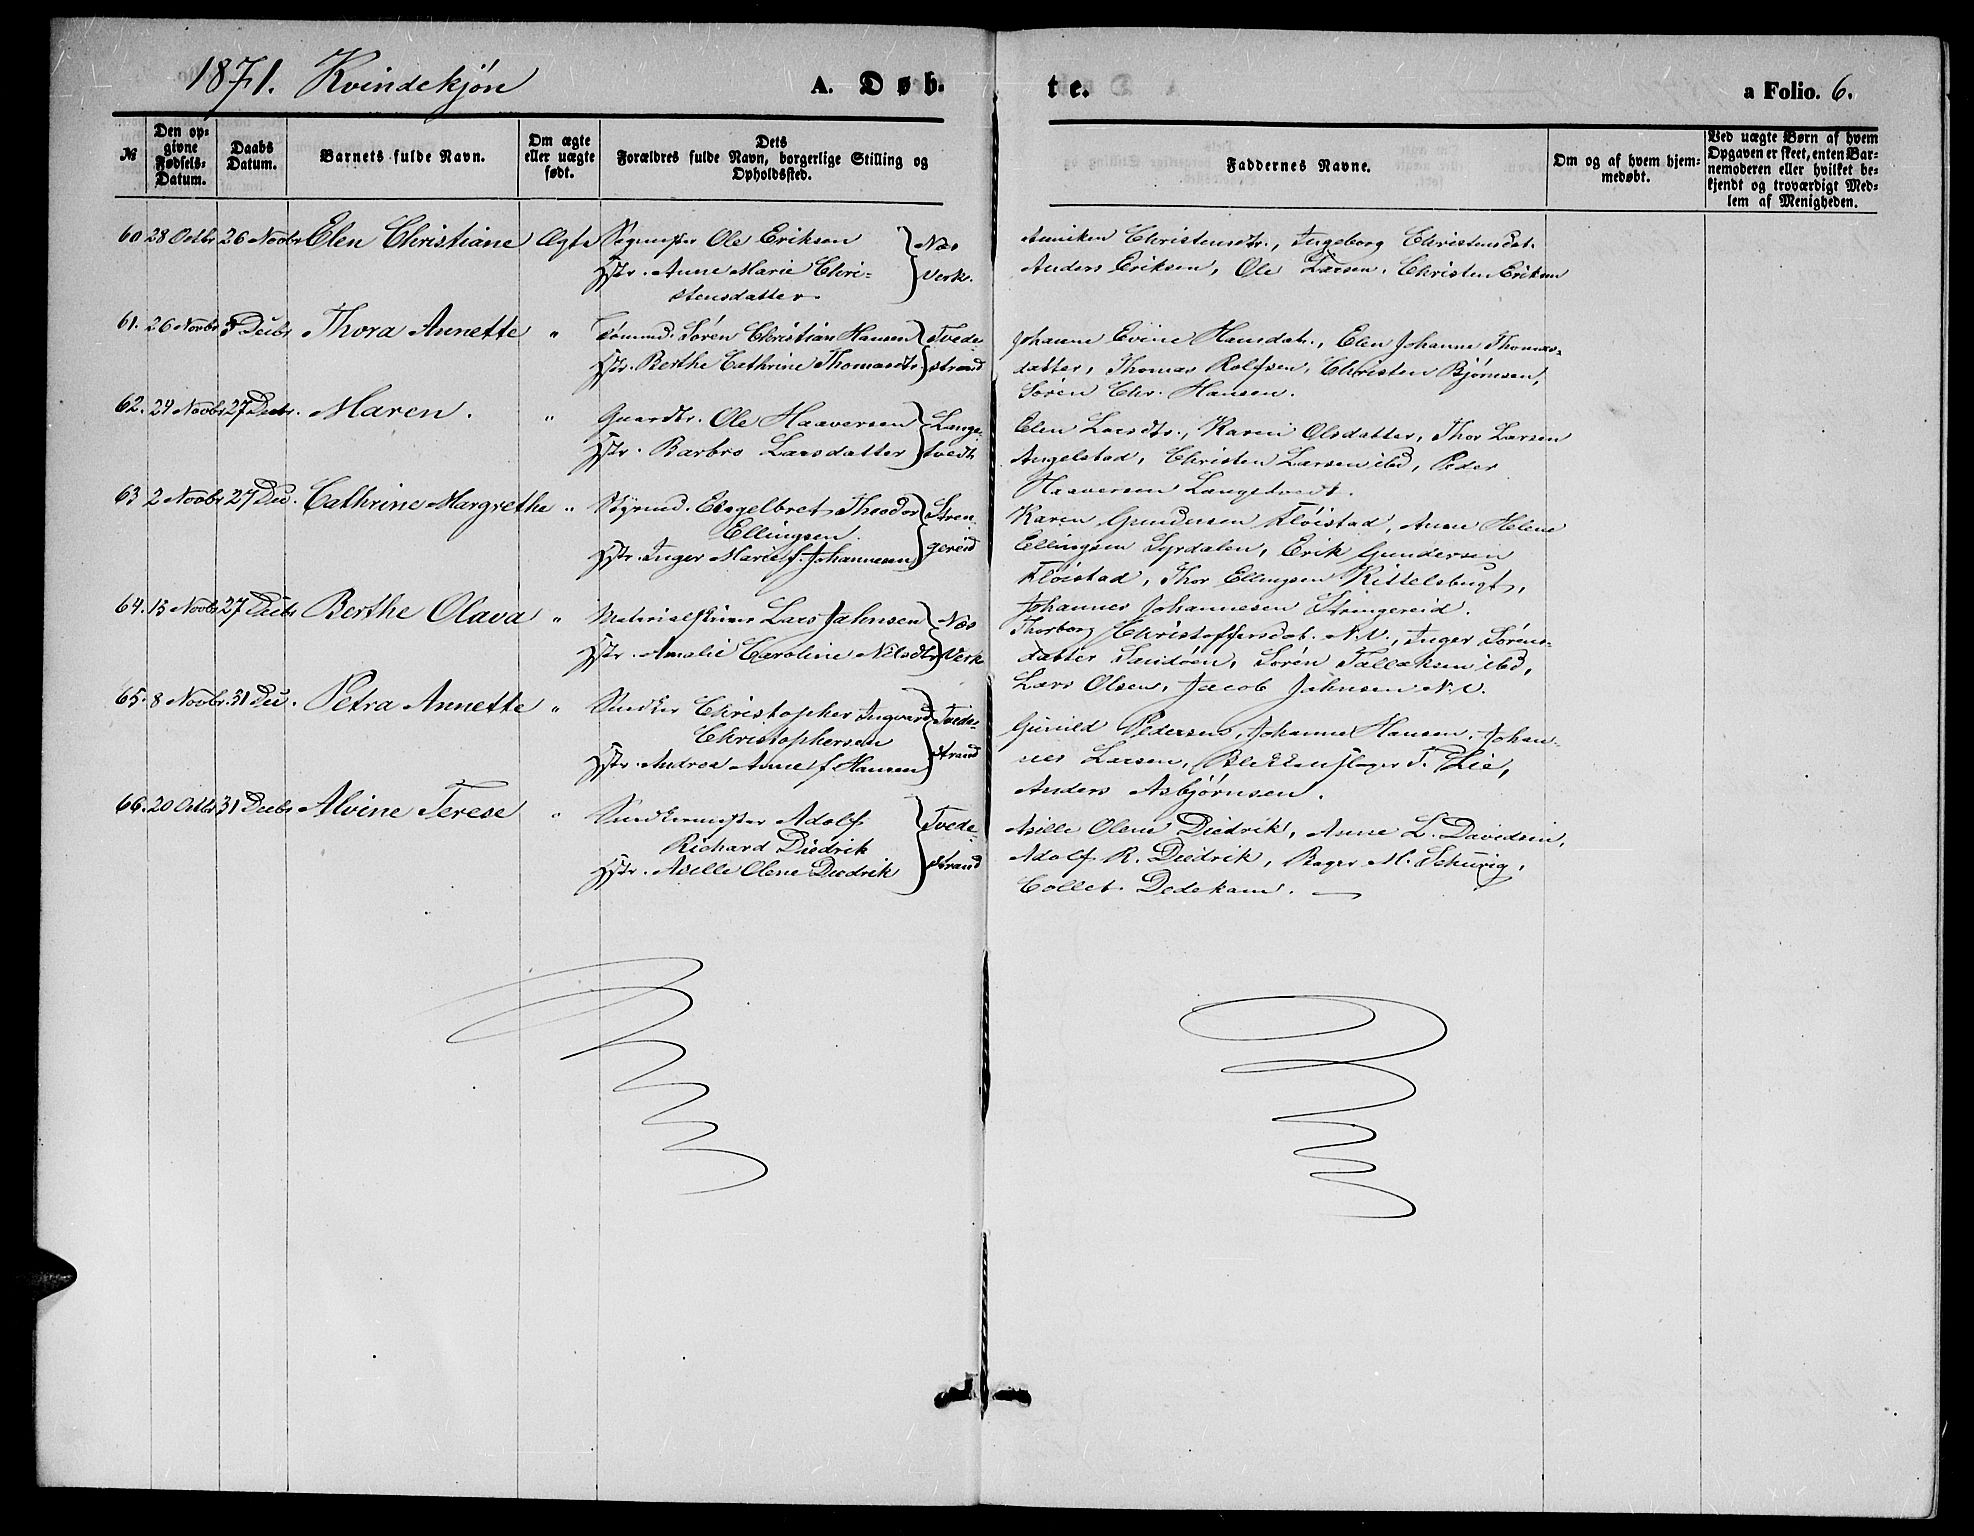 1871. Kvindekjøn
A. Døb-
te.
a Folio. 6.
№
Den op-
givne
Fødsels-
Datum.
Daabs
Datum.
Barnets fulde Navn.
Om ægte
eller uægte
født.
Dets
Forældres fulde Navn, borgerlige Stilling og
Opholdssted.
Faddernes Navne.
Om og af hvem hjem-
medøbt.
Ved uægte Børn af hvem
Opgaven er skeet, enten Bar-
nemoderen eller hvilket be-
kjendt og troværdigt Med-
lem af Menigheden.
60 28 Octbr 26 Novbr Elen Christiane Ægte Ole Eriksen Næs
Hstr. Anne Marie Chri- Verk.
stensdatter.
Anniken Christensdtr., Ingeborg Christensdat.
Anders Eriksen, Ole Larsen, Christen Eriksen
61. 26 Novbr Decbr Thora Annette " Sömmd. Sören Christian Hansen Tvede-
Hstr. Berthe Cathrine Thomasdtr strand
Johanne Evine Hansdat., Elen Johanne Thomas-
datter, Thomas Rolfsen, Christen Björnsen,
Sören Chr. Hansen.
62. 24 Novbr 27 Decbr. Maren. " Gaardbr. Ole Haaversen Lange-
Hstr. Barbro Larsdatter tvedt
Elen Larsdtr., Karen Olsdatter, Thor Larsen
Angelstad, Christen Larsen ibd, Peder
Haaversen Langetvedt.
63 2 Novbr 27 Dec. Cathrine Margrethe " Styrmd. Engelbret Theodor Stren-
Ellingsen. gereid
Hstr. Inger Marie f. Johannesen
Karen Gundersen Flöistad, Anne Helene
Ellingsen Lyrdalen, Erik Gundersen
Flöistad, Thor Ellingsen Kittelsbugt,
Johannes Johannesen Strengereid.
64. 15 Novbr 27 Decbr Berthe Olava " Materialskriver Lars Jahnsen Næs
Hstr. Amalie Caroline Nilsdtr Verk
Thorborg Christoffersdat. N.V., Inger Sörens-
datter Sandöen, Sören Tallaksen ibd,
Lars Olsen, Jacob Jahnsen N.V.
65. 8 Novbr. 31 Dec. Petra Annette " Snedker Christopher Ingvard Tvede-
Christophersen strand
Hstr. Andrea Anne f. Hansen
Gunild Pedersen, Johanne Hansen, Johan-
nes Larsen, Blikkenslager T. Lie,
Anders Asbjörnsen.
66. 20 Octbr 31 Decbr Alvine Terese " Snedkermester Adolf Tvede-
Richard Diedrik strand
Hstr. Aselle Olene Diedrik
Aselle Olene Diedrik, Anne L. Davidsen,
Adolf R. Diedrik, Bager M. Schurig,
Collet Dedekam.